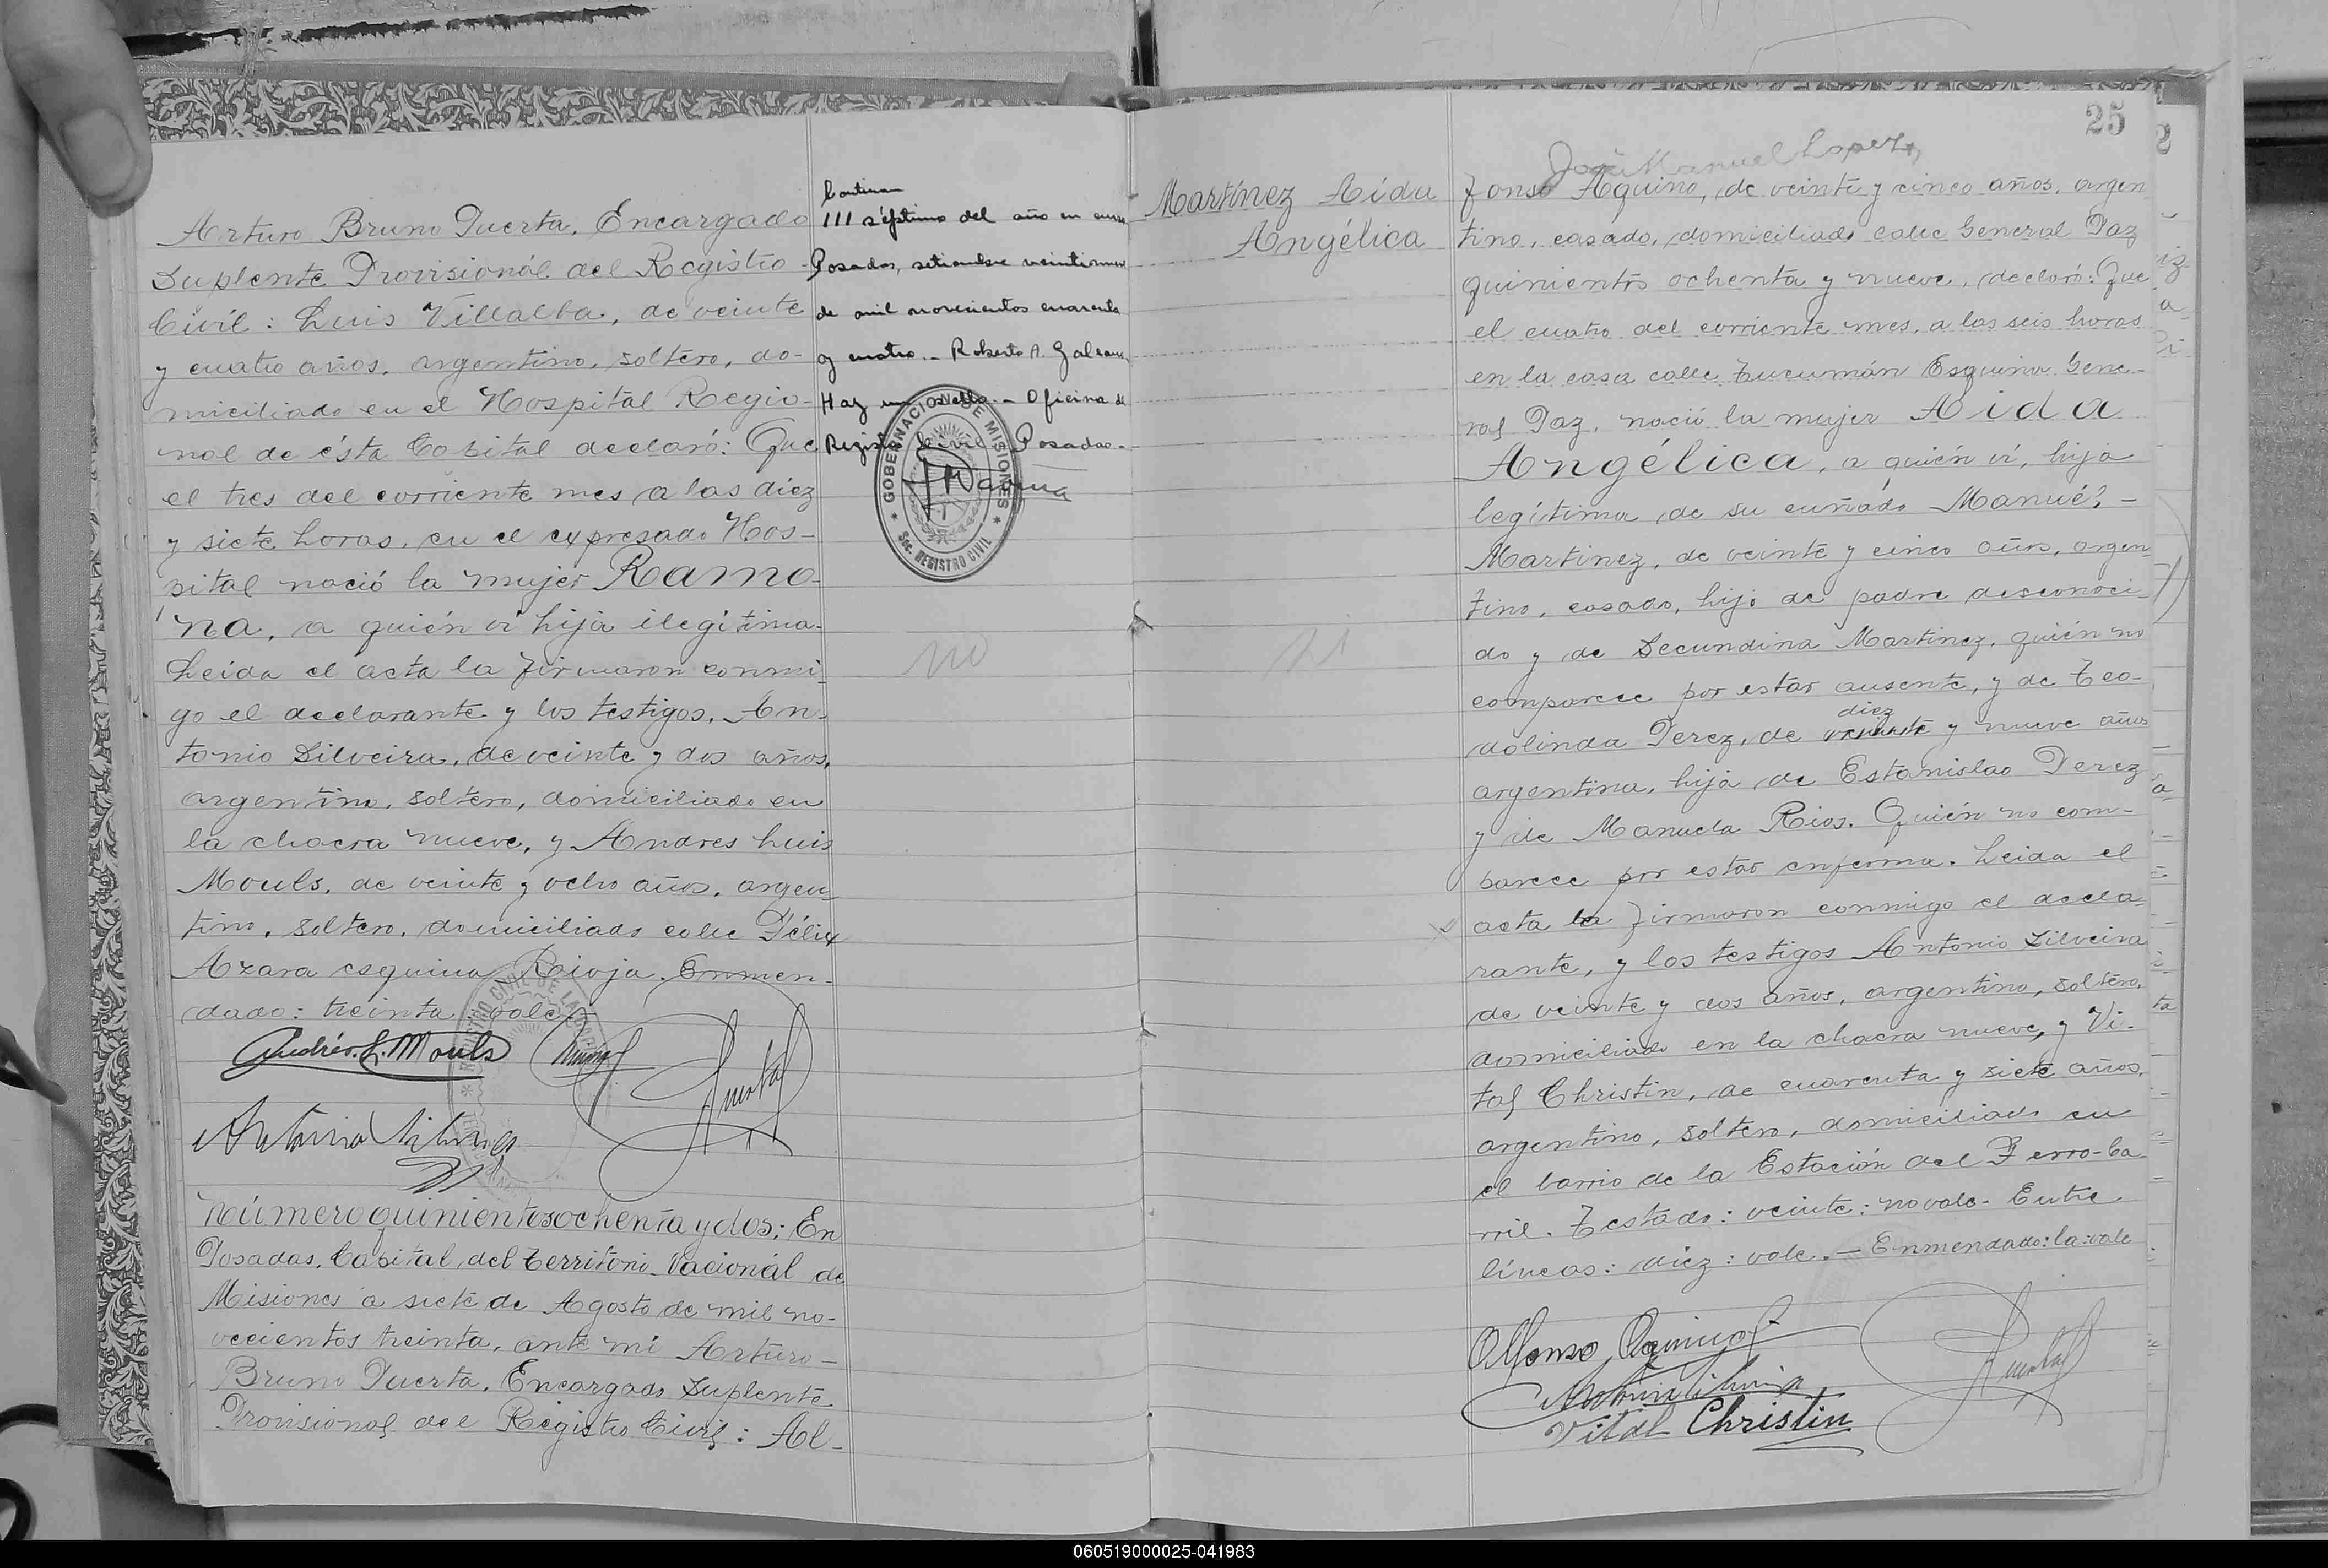 Arturo Bruno Puerta, Encargado
Suplente Provisionál del Registro
Civil: Luis Villalba, de veinte
y cuatro años, argentino, soltero, do-
miciliado en el Hospital Regio-
nal de ésta Capital declaró: Que
el tres del corriente mes a las diez
y siete horas, en el expresado Hos-
pital nació la mujer Ramo-
na, a quién vi hija ilegítima.
Leida el acta la firmaron conmi-
go el declarante y los testigos, An-
tonio Silveira, de veinte y dos años,
argentino, soltero, domiciliado en
la chacra nueve, y Andres Luis
Mouls, de veinte y ocho años, argen-
tino, soltero, domiciliado calle Félix
Azara esquina Rioja. Enmen-
dado: treinta: vale.-
Andrés L. Mouls
Antonio Silveira
Número quinientos ochenta y dos: En
Posadas, Capital del Territorio Nacionál de
Misiones a siete de Agosto de mil no-
vecientos treinta, ante mi Arturo-
Bruno Puerta, Encargado Suplente
Provisional del Registro Civil: Al-
Continua
111 séptimo del año en curso
Posadas, setiembre veintinueve
de mil novecientos cuarenta
y cuatro.- Roberto A.
Hay un sello.- Oficina de
Registro Civil Posadas.-
GOBERNACION DE MISIONES
Sec. REGISTRO CIVIL
no
25
José Manuel Lopez
Martínez Aída
Angélica
fonso Aquino, de veinte y cinco años, argen-
tino, casado, domiciliado calle General Paz
quinientos ochenta y nueve, declaró: Que
el cuatro del corriente mes, a las seis horas
en la casa calle Tucumán Esquina Gene-
ral Paz, nació la mujer Aida
Angélica, a quién vi, hija
legítima de su cuñado Manuél-
Martinez, de veinte y cinco años, argen-
tino, casado, hijo de padre desconoci-
do y de Secundina Martinez, quién no
comparece por estar ausente, y de Teo-
diez
dolinda Perez, de veinte y nueve años
argentina, hija de Estanislao Perez
y de Manuela Rios. Quién no com-
parece por estar enferma. Leida el
acta la firmaron conmigo el decla-
rante, y los testigos Antonio Silveira
de veinte y dos años, argentino, soltero,
domiciliado en la chacra nueve, y Vi-
tal Christin, de cuarenta y siete años,
argentino, soltero, domiciliado en
el barrio de la Estación del Ferro-ca-
rril. Testado: veinte: no vale- Entre
líneas: diez: vale.- Enmendado: la: vale
Alfonso Aquino
Antonio Silveira
Vital Christin
060519000025-041983